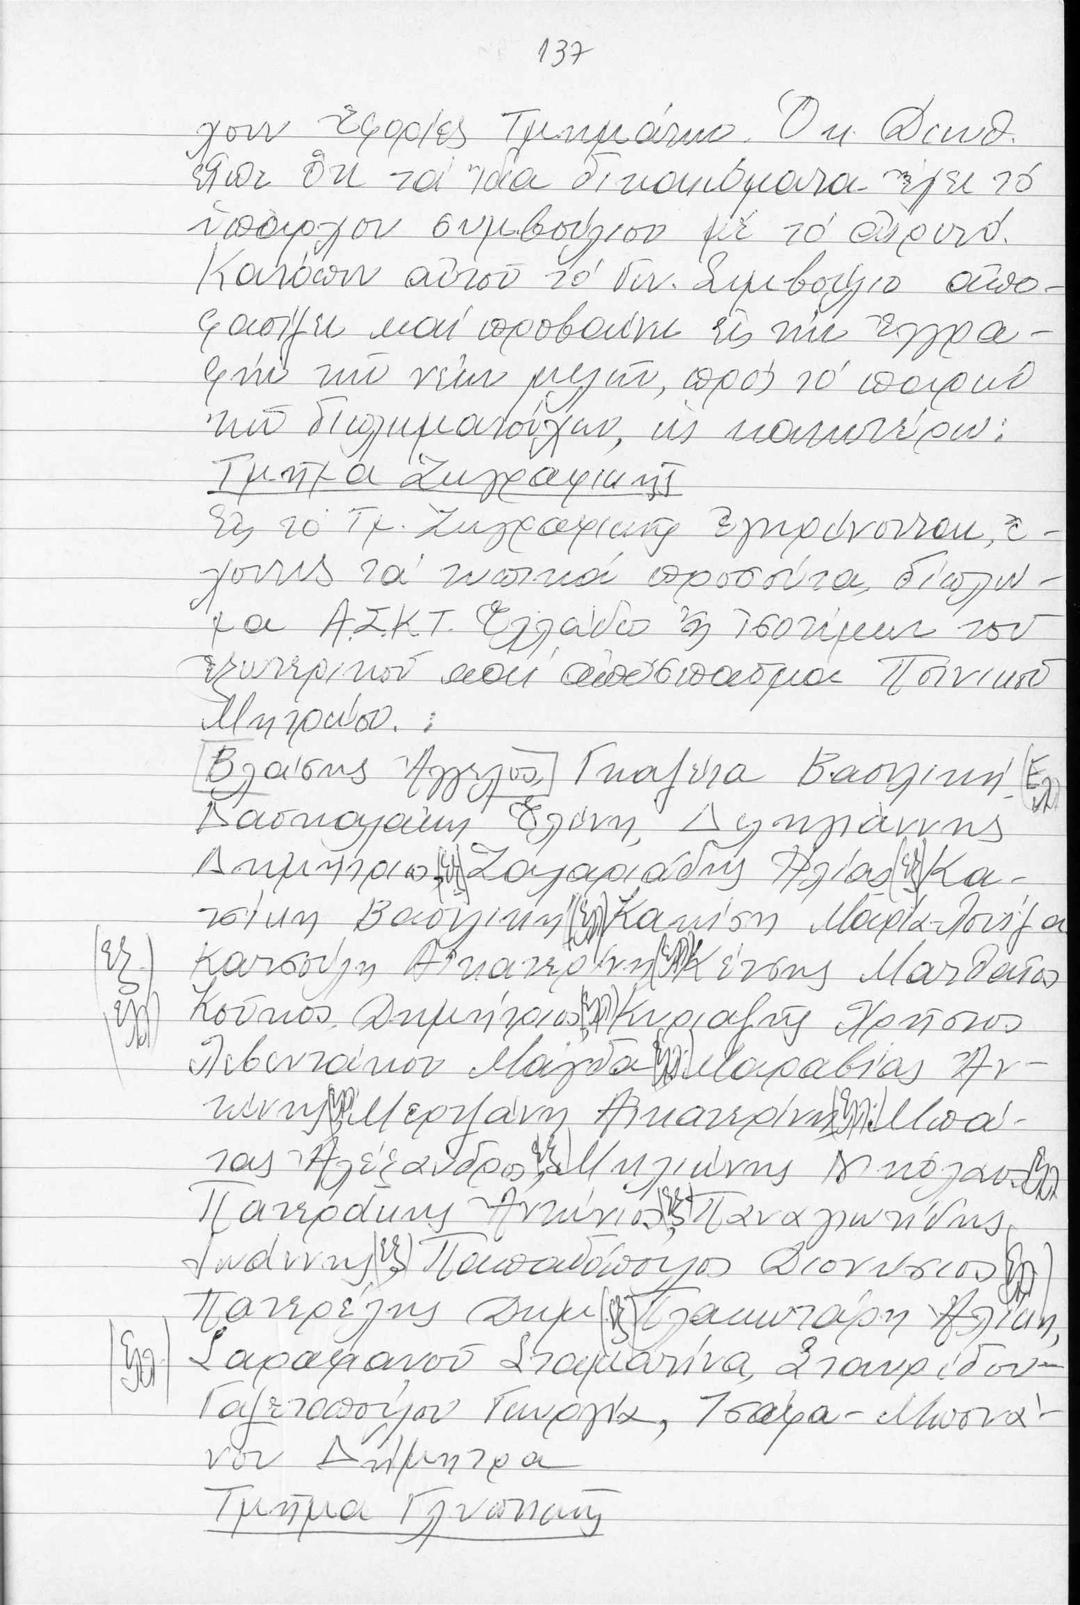 137
χουν Ἐφορίες Τμημάτων. Ὁ κ.
εἶπε ὅτι τά ἴδια δικαιώματα ἔχει τό
ὑπάρχον συμβούλιο μέ τό αἱρετό.
Κατόπιν αὐτοῦ τό Διν. Συμβούλιο ἀπο-
φασίζει καί προβαίνει εἰς τήν ἐγγρα-
φήν τῶν νέων μελῶν, πρός τό παρόν
τῶν διπλωματούχων, ὡς κατωτέρω:
Τμῆμα Ζωγραφικῆς
Εἰς τό Τμ. Ζωγραφικῆς ἐγκρίνονται, ἔ-
χοντες τά τυπικά προσόντα, δίπλω-
μα Α.Σ.Κ.Τ. Ἑλλάδος ἤ ἰσοτίμου τοῦ
ἐξωτερικοῦ καί ἀπόσπασμα Ποινικοῦ
Μητρώου. :
Βλάσσης Ἄγγελος, Γκαζέτα Βασιλική (Ελ)
Δασκαλάκη Ἑλένη, Δεληγιάννης
Δημήτριος (εξ) Ζαχαριάδης Ἠλίας (εξ) Κα-
τσίκη Βασιλική (Ελ) Μαρία-Λουίζα
(εξ.) Κατσούλη Αἰκατερίνη (Ελ) Κέντσης Ματθαῖος
(ελ) Κοῦκος Δημήτριος (Ελ) Κυριαζῆς Χρῆστος
Λεβεντάκου Μάγδα (Ελ) Μαραβίας Ἀν-
τώνης (Ελ) Μερτζάνη Αἰκατερίνη (Ελ.) Μπά-
τας Ἀλέξανδρος (εξ) Μηλιώνης Νικόλαος (Ελ)
Πατεράκης Ἀντώνιος (εξ) Παναγιωτίδης
Ἰωάννης (εξ) Παπαδόπουλος Διονύσιος (Ελ)
Πατερέλης Δημ (εξ) Πλακωτάρη Ἀλίκη,
(Ελ) Σαραφιανοῦ Σταματίνα, Σταυρίδου-
Γαζεταοπούλου Γεωργία, Τσάφα-
νου Δήμητρα
Τμῆμα Γλυπτικῆς